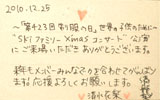 2010.12.25
〜"第423回 制服の日"世界の子供の為に〜
"SKiファミリー Xmasコンサート"公演
にご来場いただきありがとうございます。
来年もメンバーみんなで力を合わせてがんばり
ます!!応援よろしくお願いします。